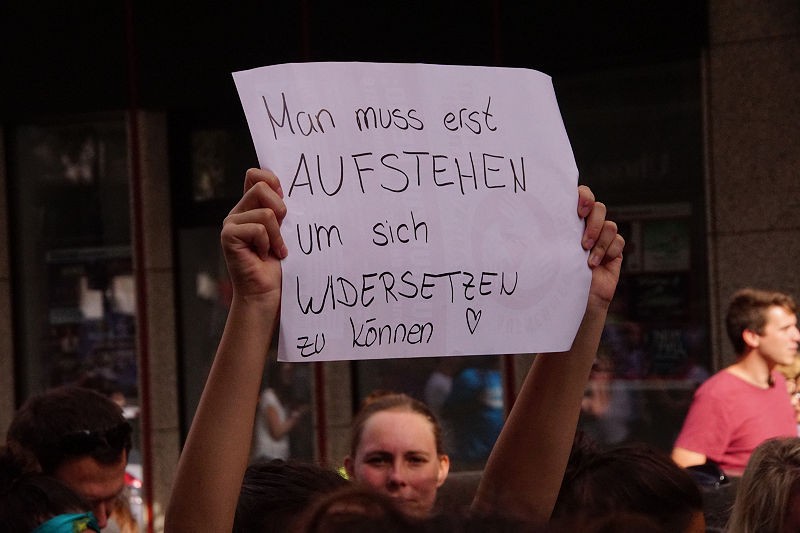 Man muss erst
AUFSTEHEN
um sich
WIDERSETZEN
zu können ♡